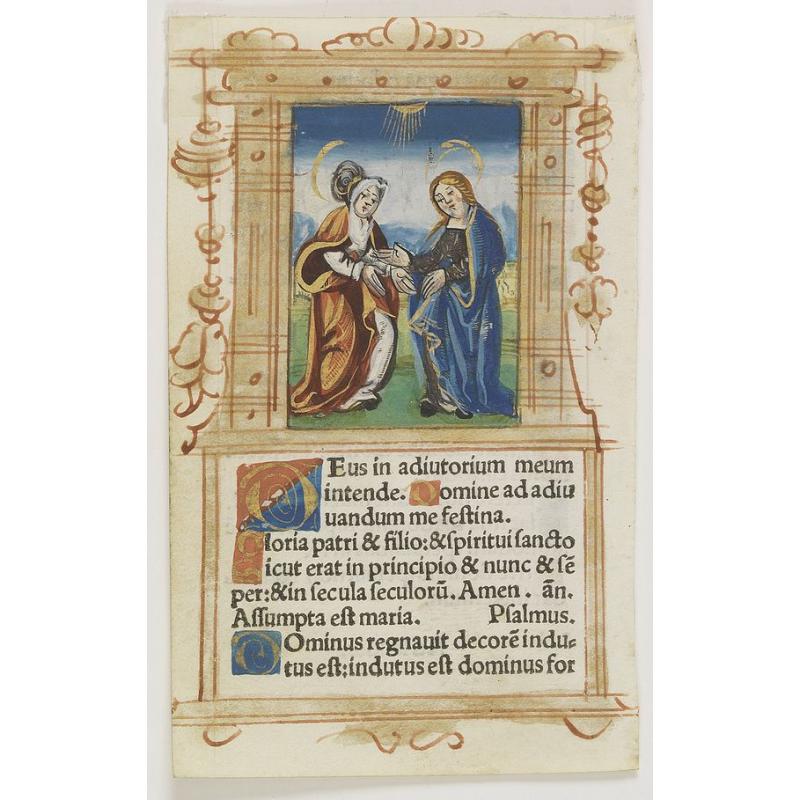 Deus in adiutorium meum
intende. Domine ad adiu
uandum me festina.
Gloria patri & filio: & spiritui sancto
Sicut erat in principio & nunc & sē
per: & in secula seculorū. Amen. ān.
Assumpta est maria. Psalmus.
DOminus regnauit decorē indu-
tus est: indutus est dominus for